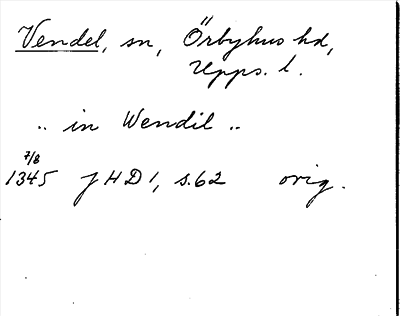 Vendel, sn, Örbyhus hd,
Upps. l.
.. in Wendil ..
7/8
1345 JHD 1, s. 62 orig.